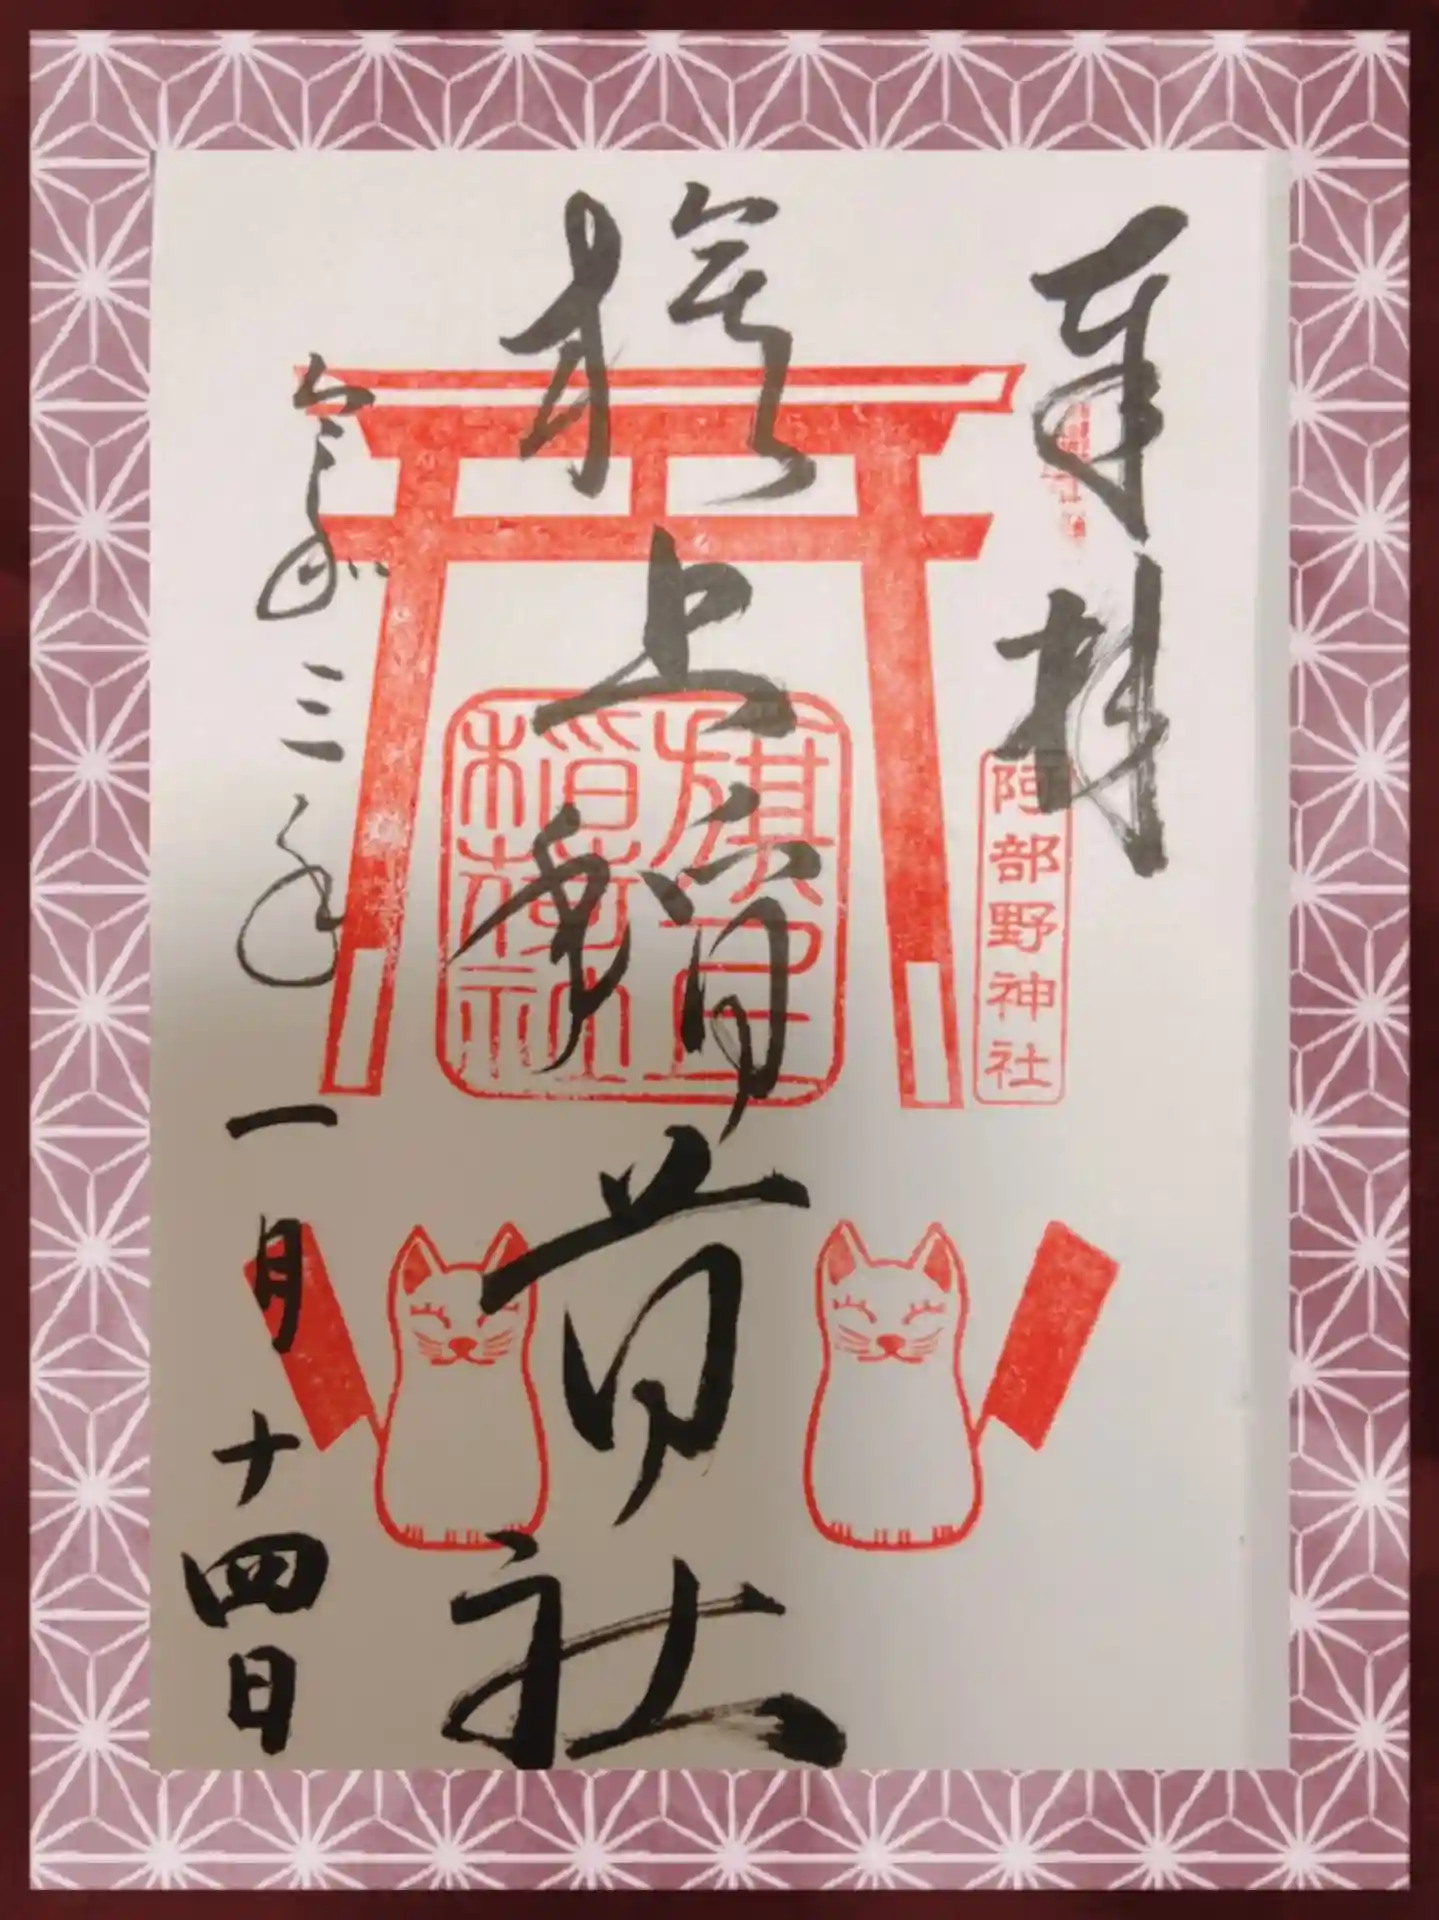 奉拝
阿部野神社
旗上稲荷社
旗上
稲荷社
令和三年一月十四日